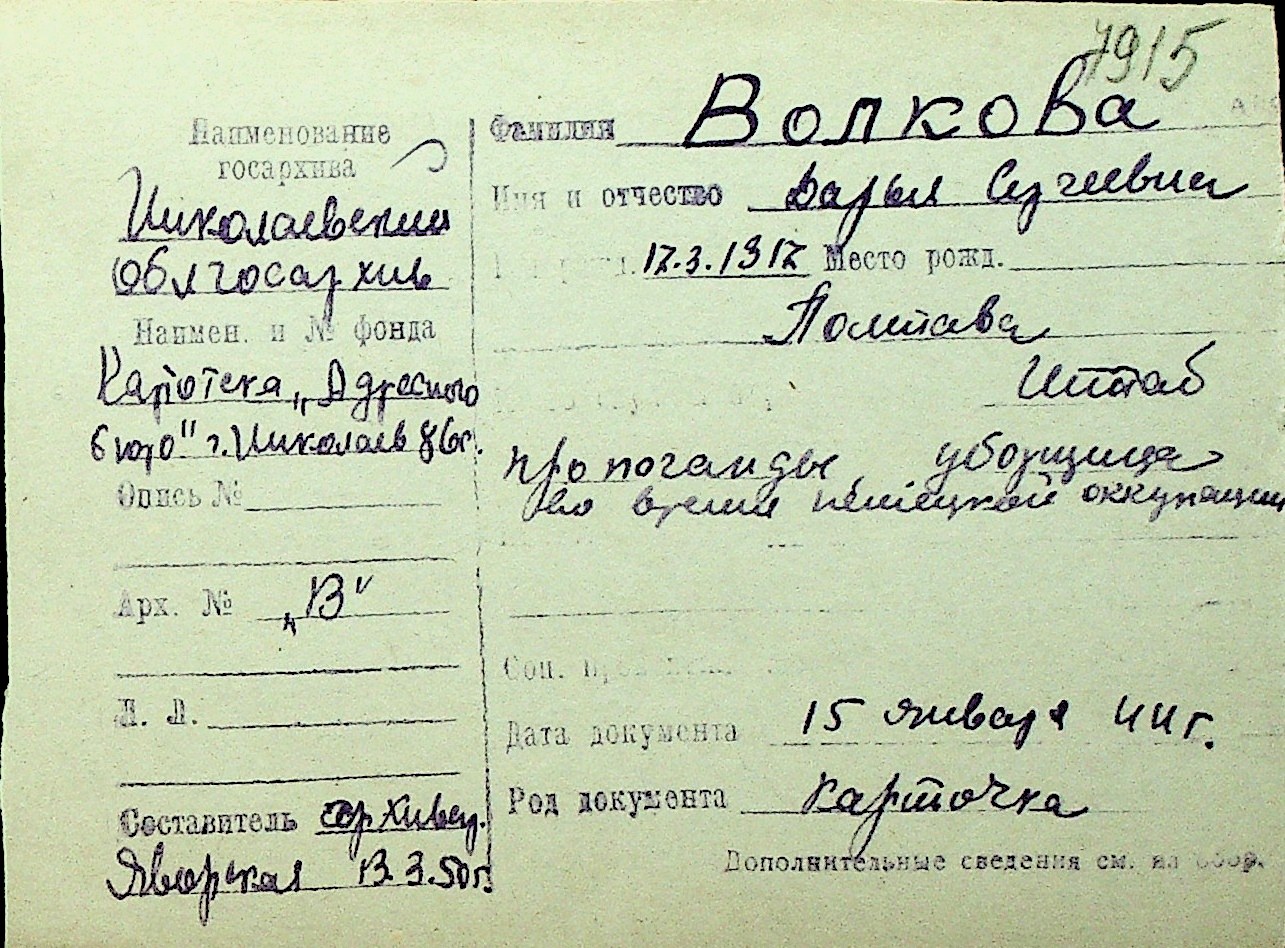 7915
Наименование
госархива
Николаевский
Облгосархив
Наимен. и № фонда
Картотека „Адресного
бюро" г. Николаев
Опись №
Арх. № „В"
Л. Л.
Составитель архивец.
Яворская 13.3.50г.
Фамилия Волкова
Имя и отчество Дарья
12.3.1912 Место рожд.
Полтава
Штаб
пропоганды уборщица
во время немецкой оккупации
Соц.
Дата документа 15 января 44г.
Род документа карточка
Дополнительные сведения см. на обор.